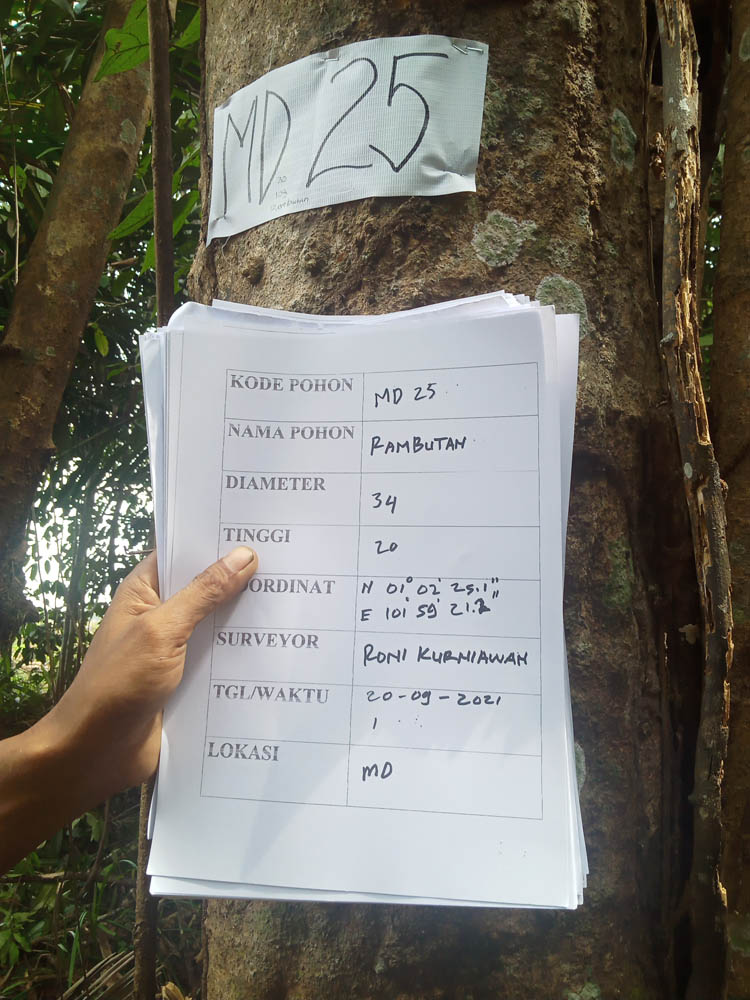 MD 25
Rambutan
KODE POHON MD 25
NAMA POHON RAMBUTAN
DIAMETER 34
TINGGI 20
OORDINAT N 01° 02' 25.1"
E 101° 59' 21.2"
SURVEYOR RONI KURNIAWAN
TGL/WAKTU 20-09-2021
LOKASI MD